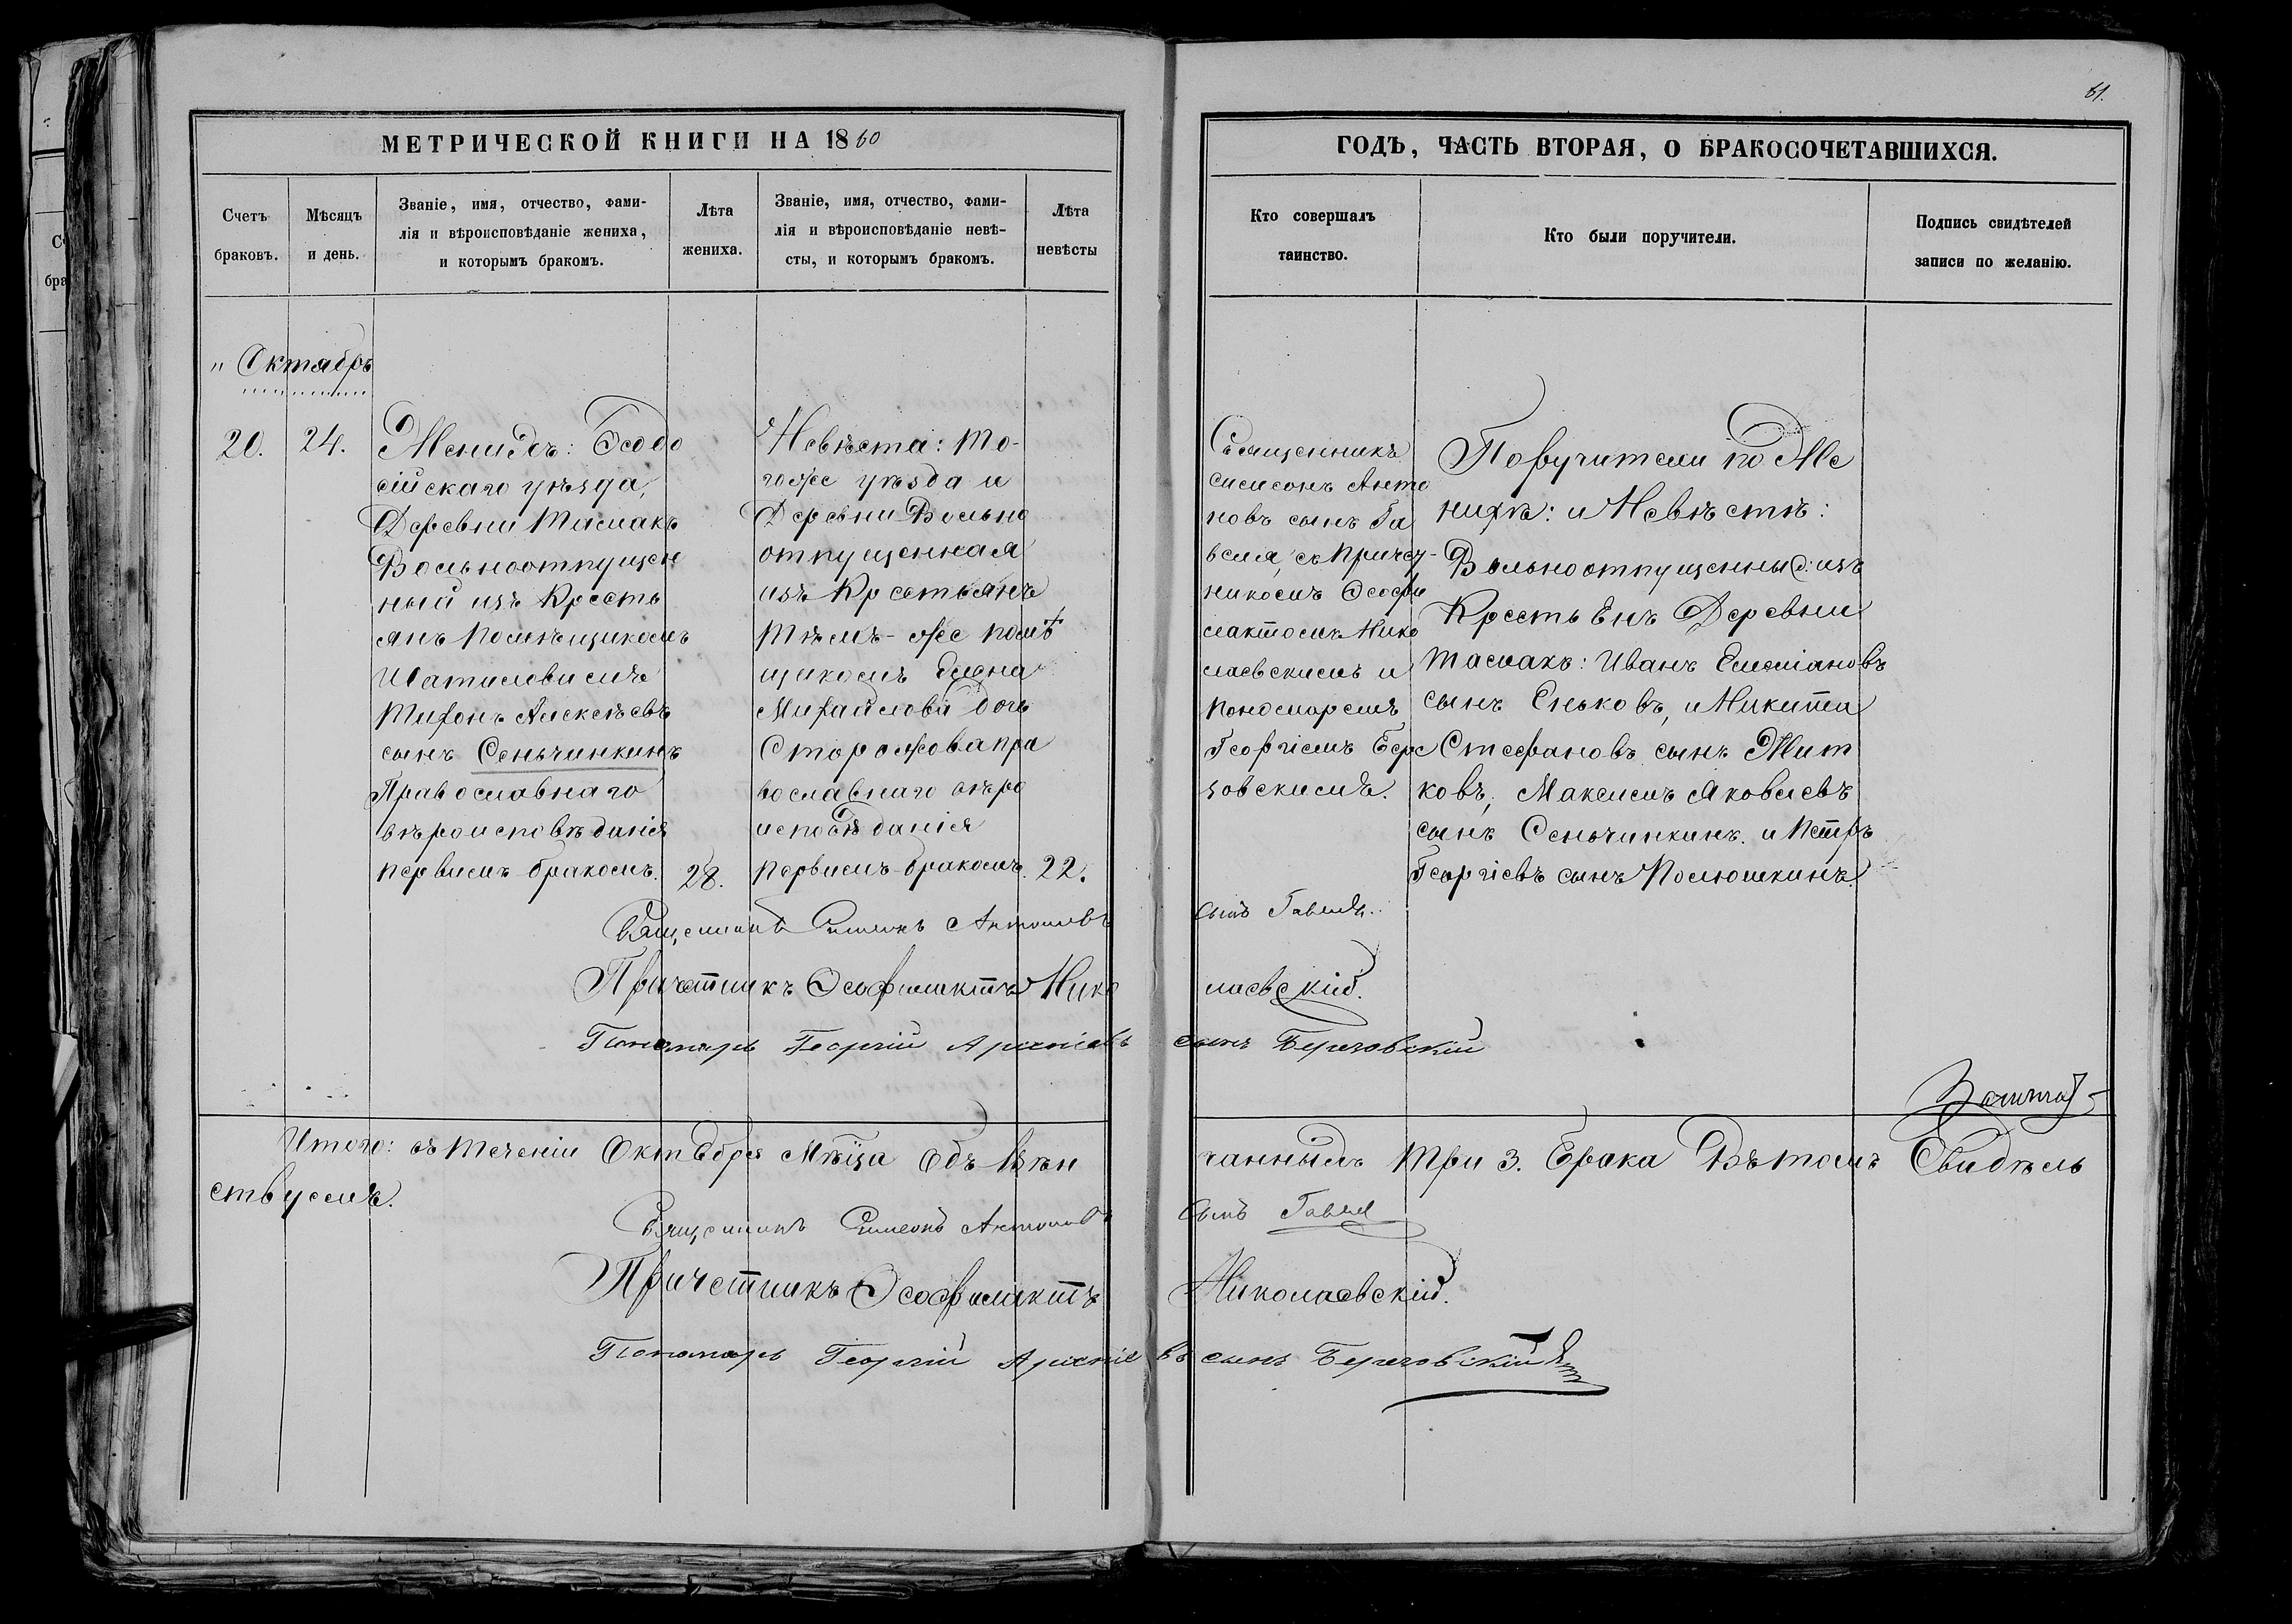 61.
МЕТРИЧЕСКОЙ КНИГИ НА 1860
ГОДЪ, ЧАСТЬ ВТОРАЯ, О БРАКОСОЧЕТАВШИХСЯ.
Счетъ
браковъ.
Мѣсяцъ
и день.
Званіе, имя, отчество, фами-
лія и вѣроисповѣданіе жениха,
и которымъ бракомъ.
Лѣта
жениха.
Званіе, имя, отчество, фами-
лія и вѣроисповѣданіе невѣ-
сты, и которымъ бракомъ.
Лѣта
невѣсты
Кто совершалъ
таинство.
Кто были поручители.
Подпись свидѣтелей
записи по желанію.
„ Октябрь
20.
24.
Женихъ: Ѳеодо
сійскаго уѣзда,
Деревни Тамакъ
Вольноотпущен
ный изъ Кресть
янъ помѣщикомъ
Шатиловимъ
Тихонъ Алексѣевъ
сынъ Сеньчинкинъ
Православнаго
вѣроисповѣданія
первимъ бракомъ.
28.
Невѣста: то-
гоже уѣзда и
Деревни Вольно
отпущенная
изъ Крестьянъ
тѣмъ-же помѣ
щикомъ Елена
Михайлова дочь
Сторожова пра
вославнаго вѣро
исповѣданія
первимъ бракомъ.
22.
Священникъ
Симеонъ Анто
новъ сынъ Га
веля, съ Причет-
никомъ Ѳеофи
лактомъ Нико
лаевскимъ и
пономаремъ
Георгіемъ Бере
зовскимъ.
Поручители по Же
нихѣ: и Невѣстѣ:
Вольноотпущенные: изъ
Крестьянъ Деревни
Тамакъ: Иванъ Емеліановъ
сынъ Еньковъ, и Никита
Стефановъ сынъ Жит
ковъ, Максимъ Яковлевъ
сынъ Сеньчинкинъ. и Петръ
Георгіевъ сынъ Полюшкинъ.
Священникъ Симеонъ Антоновъ сынъ Гавеля.
Причетникъ Ѳеофилактъ Николаевскій.
Пономарь Георгій Арсеніевъ сынъ Березовскій
Итого: въ теченіи Октября Мѣсяца Объ вѣн
чаннымъ три 3. брака Въ томъ Свидѣтель
ствуемъ.
Священникъ Симеонъ Антоновъ сынъ Гавеля
Причетникъ Ѳеофилактъ Николаевскій.
Пономарь Георгій Арсеніевъ сынъ Березовскій